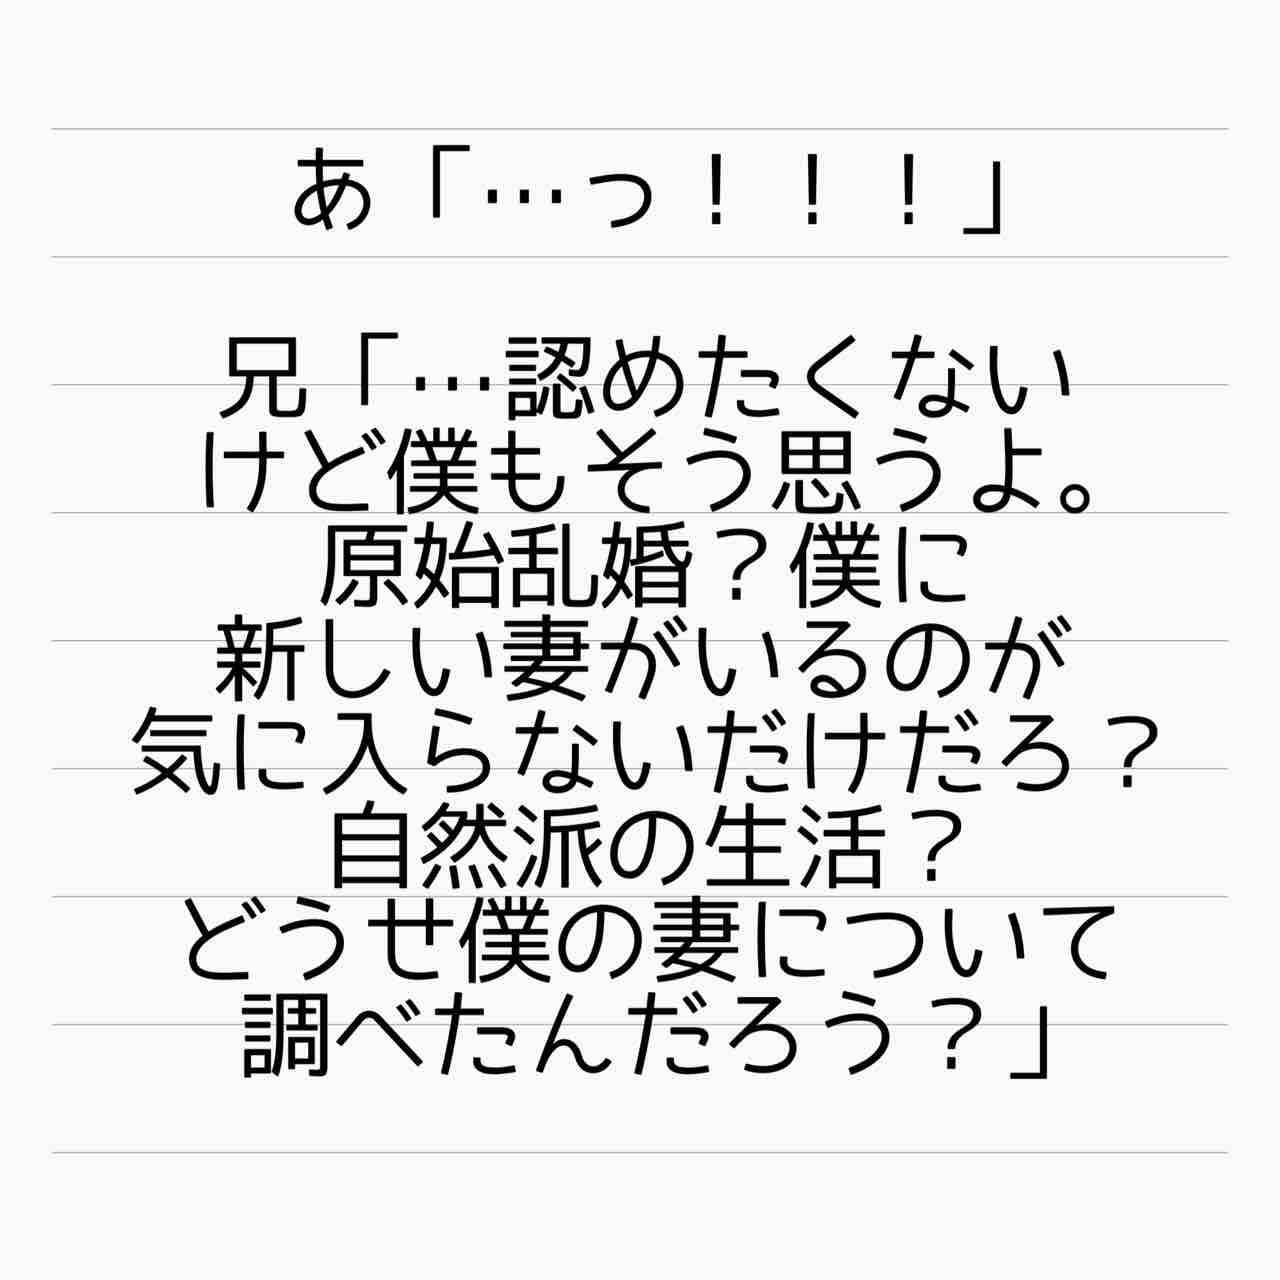 あ「…っ！！！」
兄「…認めたくない
けど僕もそう思うよ。
原始乱婚？僕に
新しい妻がいるのが
気に入らないだけだろ？
自然派の生活？
どうせ僕の妻について
調べたんだろう？」